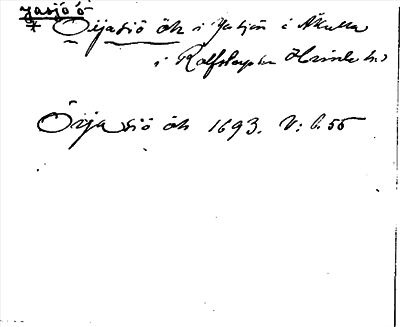 Jasjöö
* Öijasiö ök i Jasjön i Åkulla
i Rolfstorps hd
Öija siö ök 1693. V: b. 55